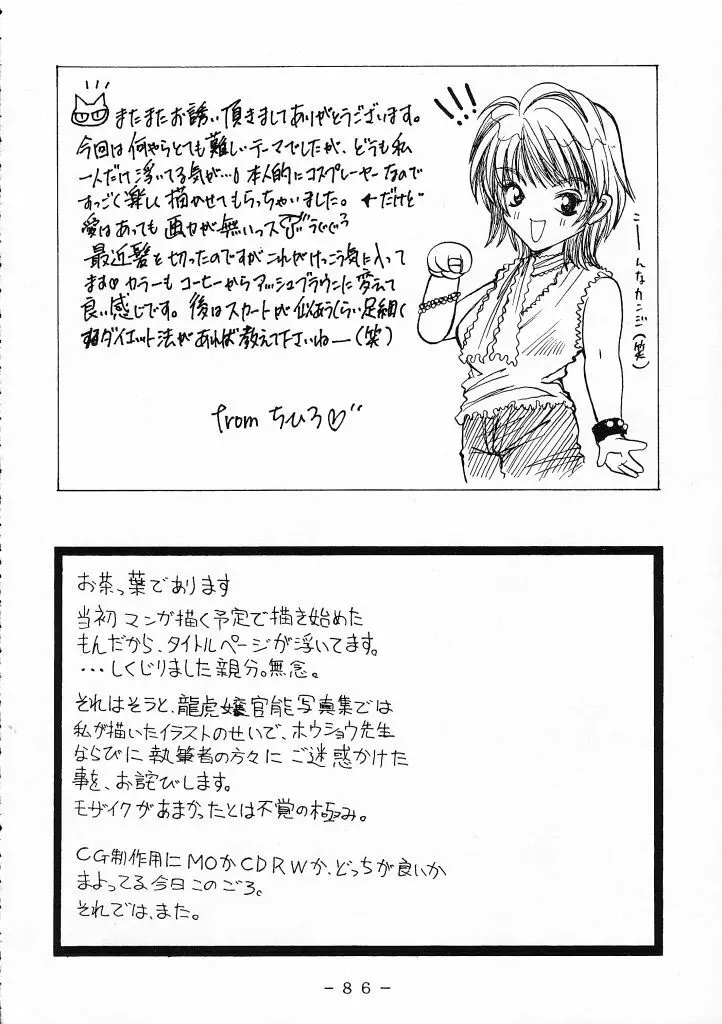 またまたお誘い頂きましてありがとうございます。
今回は何やらとても難しいテーマでしたが、どうも私
一人だけ浮いてる気が…! 本人的にコスプレーヤーなので
すっごく楽しく描かせてもらっちゃいました。 ←だけど
愛はあっても画力が無いっス
最近髪を切ったのですがこれがけっこう気に入って
ます♡ カラーもコーヒーからアッシュブラウンに変えて
良い感じです。後はスカートが似合うくらい足細く
するダイエット法があれば教えて下さいねー(笑)
from ちひろ♡
!!!
こーんなカンジ(笑)
お茶っ葉であります
当初マンガ描く予定で描き始めた
もんだから、タイトルページが浮いてます。
・・・しくじりました親分。無念。
それはそうと、龍虎嬢官能写真集では
私が描いたイラストのせいで、ホウショウ先生
ならびに執筆者の方々にご迷惑かけた
事を、お詫びします。
モザイクがあまかったとは不覚の極み。
CG制作用にMOかCDRWか、どっちが良いか
まよってる今日このごろ。
それでは、また。
-86-